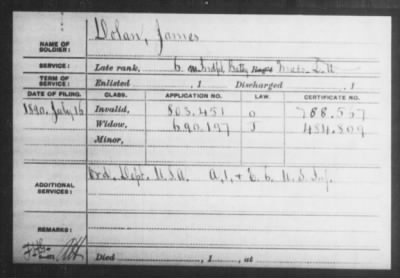 Dolan, James
NAME OF SOLDIER:
SERVICE: Late rank, 6 Indpt Batty Mass. L. A.
TERM OF SERVICE: Enlisted , 1 Discharged , 1
DATE OF FILING. CLASS. APPLICATION NO. LAW. CERTIFICATE NO.
1890, July 16 Invalid, 803.451
Widow, 690.197 484.809
Minor,
ADDITIONAL SERVICES: Ord. Dept. U.S.A. A, I, + E. 6. U.S. Inf.
REMARKS:
Died , 1 , at